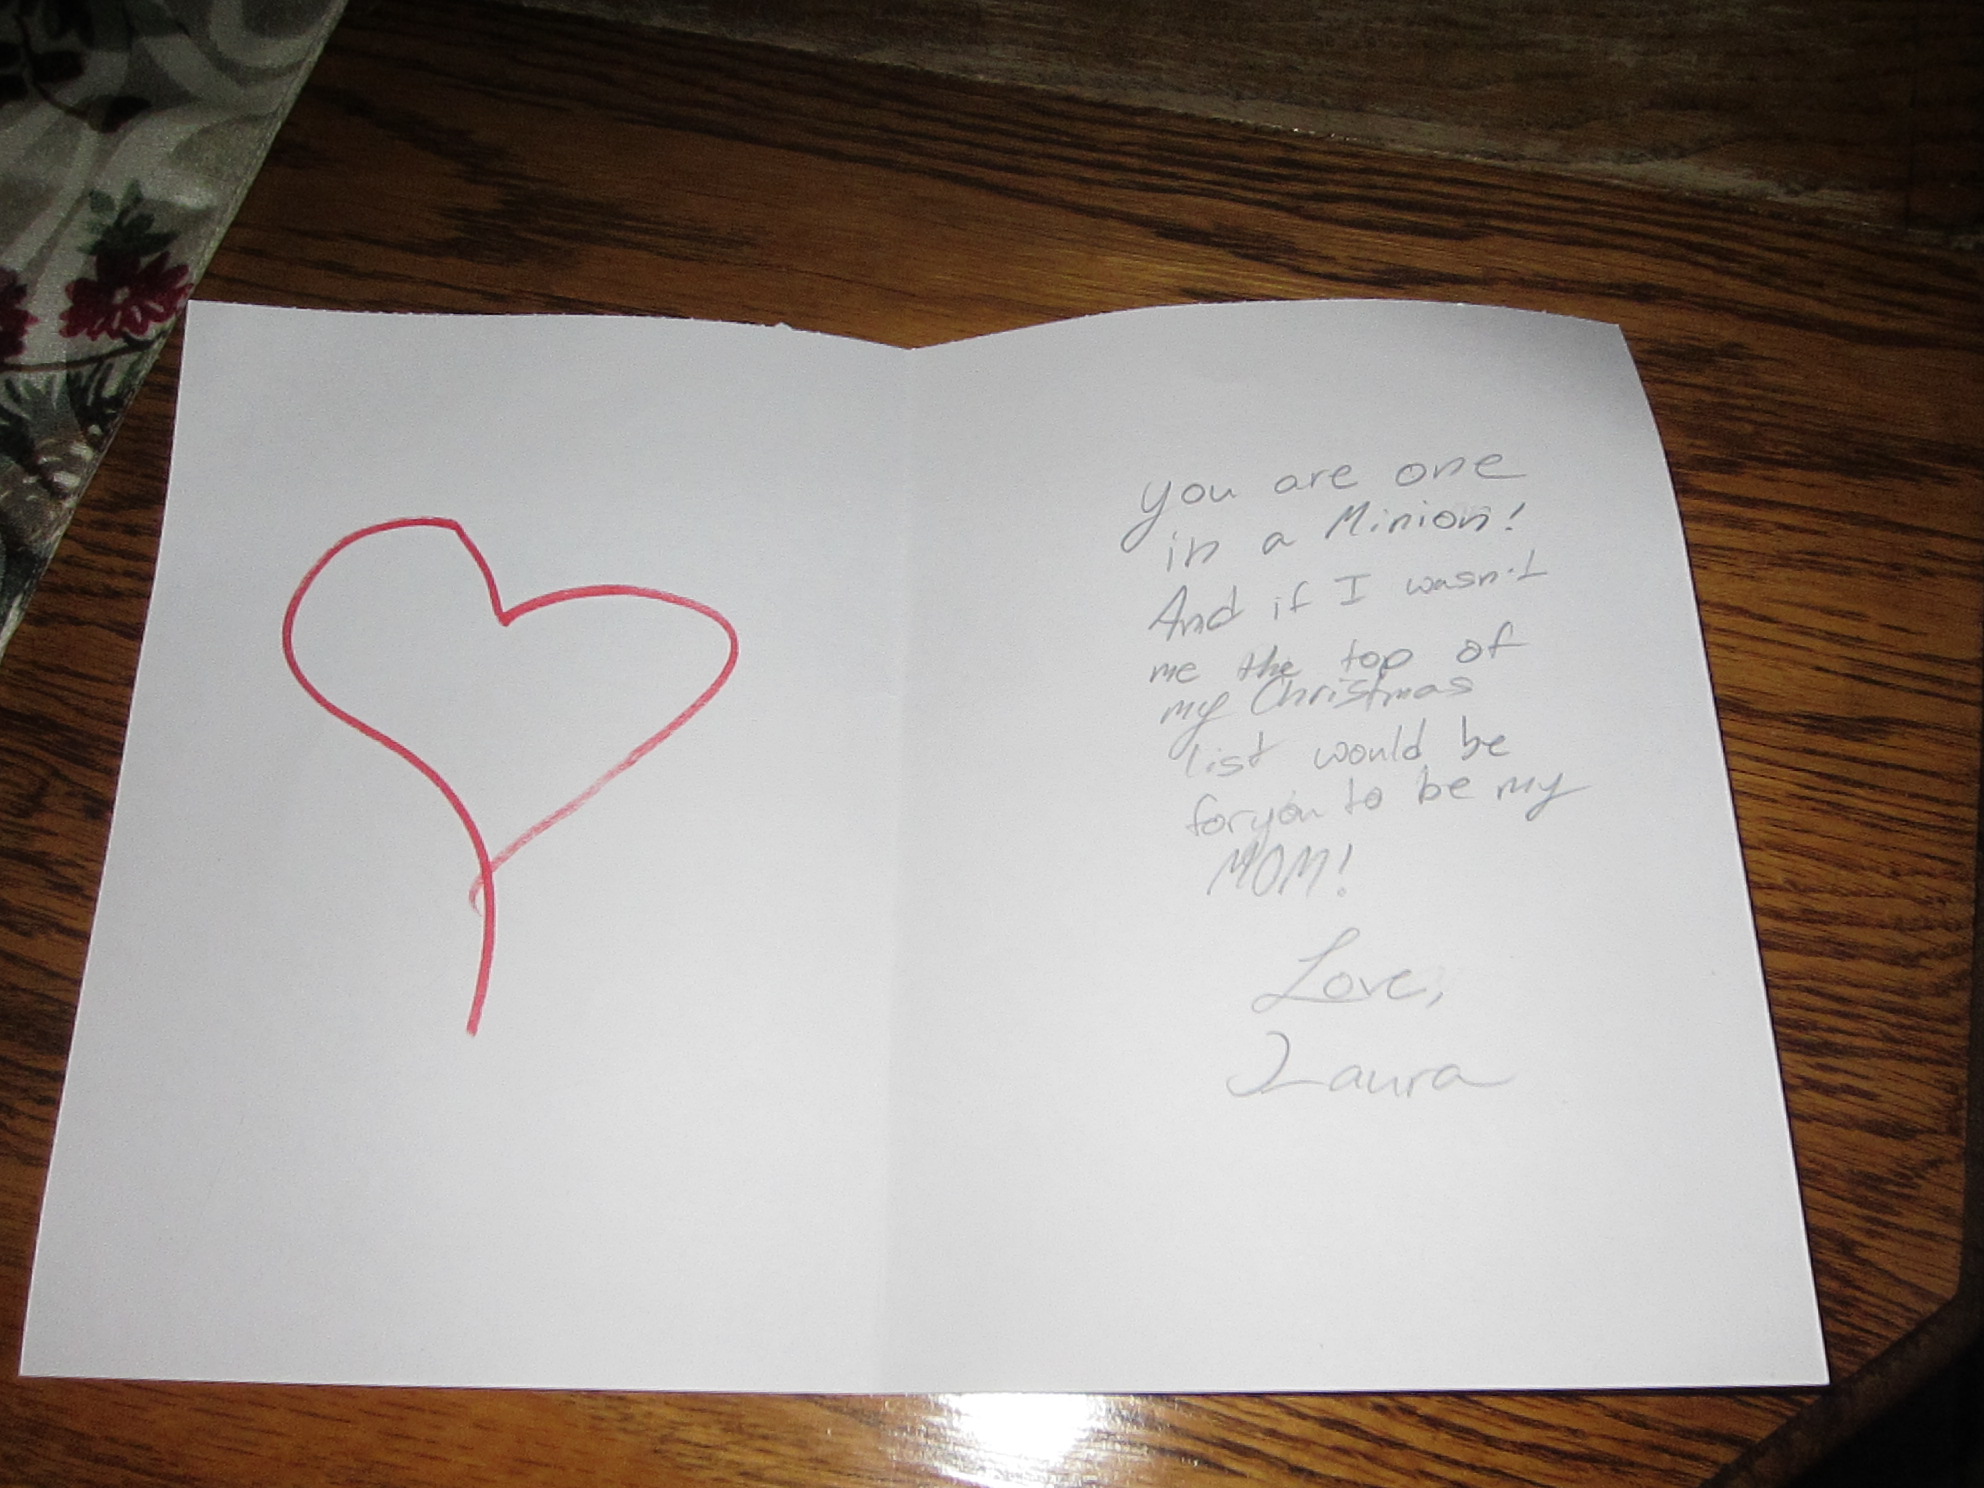 you are one
in a Minion!
And if I wasn't
me the top of
my Christmas
list would be
for you to be my
MOM!
Love,
Laura